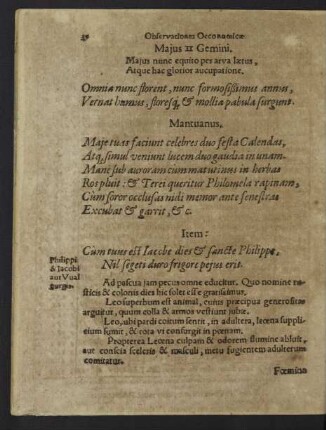 Observationes Oeconomicæ
Majus II Gemini.
Majus nunc equito per arva lætus,
Atque hac glorior aucupatione.
Omnia nunc florent, nunc formosissimus annus,
Vernat humus, floresq, & mollia pabula surgunt.
Mantuanus,
Maje tuas faciunt celebres duo festa Calendas,
Atq, simul veniunt lucem duo gaudia in unam.
Mane sub auroram cum matutinus in herbas
Ros pluit: & Terei queritur Philomela rapinam,
Cum soror occlusas nidi memor ante fenestras
Excubat & garrit, &c.
Item:
Cum tuus est Iacobe dies & sancte Philippe,
Nil segeti duro frigore pejus erit.
Philippi
& Iacobi
aut Vual
purgis.
Ad pascua jam pecus omne educitur. Quo nomine ru-
sticis & colonis dies hic solet esse gratissimus.
Leo superbum est animal, cuius præcipua generositas
arguitur, quum colla & armos vestiunt jubæ.
Leo, ubi pardi coitum sentit, in adultera, leæna suppli-
cium sumit, & tota vi consurgit in pœnam.
Propterea Leæna culpam & odorem flumine abluit,
aut conscia sceleris & masculi, metu fugientem adulterum
comitatur.
Fœmina